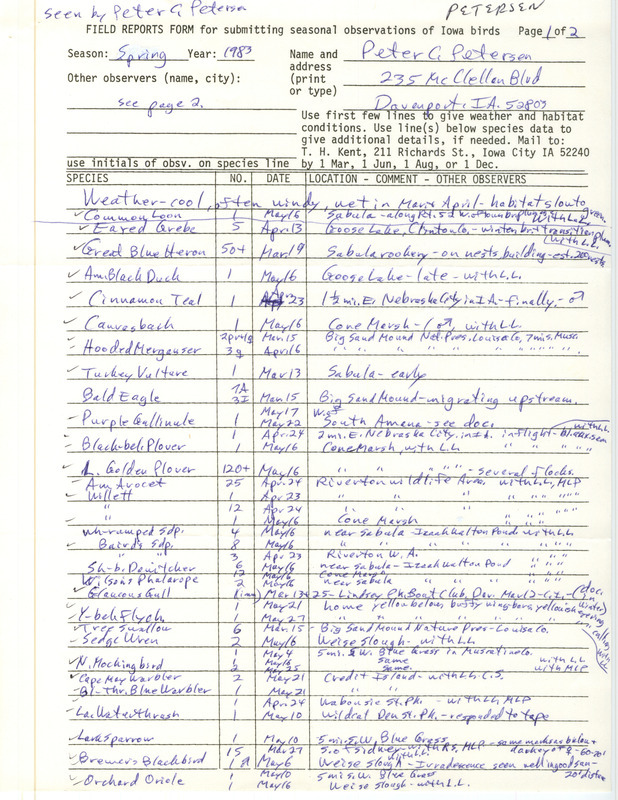 seen by Peter C Petersen
PETERSEN
FIELD REPORTS FORM for submitting seasonal observations of Iowa birds Page 1 of 2
Season: Spring Year: 1983 Name and Peter C Petersen
address
Other observers (name, city): (print 235 McClellan Blvd
or type)
see page 2. Davenport, IA. 52803
Use first few lines to give weather and habitat
conditions. Use line(s) below species data to
give additional details, if needed. Mail to:
T. H. Kent, 211 Richards St., Iowa City IA 52240
use initials of obsv. on species line by 1 Mar, 1 Jun, 1 Aug, or 1 Dec.
SPECIES NO. DATE LOCATION - COMMENT - OTHER OBSERVERS
Weather-cool, often windy, wet in Mar & April - habitat slow to green
Common Loon 1 May 16 Sabula - along Rt. 52 with L.L.
Eared Grebe 5 April 13 Goose Lake, Clinton Co. - winter but transition plum. (with L.L.)
Great Blue Heron 50+ Mar 19 Sabula rookery - on nests, building - est. 200 nests
Am Black Duck 1 May 16 Goose Lake - late - with L.L.
Cinnamon Teal 1 23 1½ mi. E. Nebraska City in IA - finally - ♂
Canvasback 1 May 16 Cone Marsh - 1 ♂, with L.L.
Hooded Merganser Mar 15 Big Sand Mound Nat. Pres. Louisa Co, 7 mi s. Musc.
3♀ April 6 " " " " " " " "
Turkey Vulture 1 Mar 13 Sabula - early
Bald Eagle 7A 3I Mar 15 Big Sand Mound - migrating upstream.
Purple Gallinule 1 May 17 May 22 W. of South Amana - see doc.
Black-bel. Plover 1 Apr. 24 2 mi. E. Nebraska City, in Ia. in flight - bl. axs. seen
1 May 16 Cone Marsh, with L.L.
L. Golden Plover 120+ May 16 " " " " - several flocks.
Am Avocet 25 Apr. 24 Riverton Wildlife Area. with L.L, MLP
Willett 1 Apr 23 " " " " "
" 12 Apr 24 " " " " "
" 1 May 16 Cone Marsh
Wh-rumped Sdp. 4 May 16 near Sabula - Izaak Walton Pond with L.L.
Baird's Sdp. 8 May 16 " " " " " "
" " 3 Apr 23 Riverton W. A.
Sh-b. Dowitcher 6 May 16 near Sabula - Izaak Walton Pond
12 May 16 Cone Marsh
Wilson's Phalarope 2 May 16 near Sabula
Glaucous Gull 1 imm Mar 13 Lindsay Pk. Boat Club, Dav.
Y-bel Flych 1 May 21 home yellow below, busty wingbars, yellowish eyering
1 May 27 " " " " "
Tree Swallow 6 Mar. 15 - Big Sand Mound Nature Pres - Louisa Co.
Sedge Wren 2 May 16 Weise Slough - with L.L.
N. Mockingbird 1 May 4 5 mi. S.W. Blue Grass in Muscatine Co.
May 16 same with L.L
same with MLP
Cape May Warbler 2 May 21 Credit Island - with L.L. C.S.
Bl-Thr. Blue Warbler 1 May 21 " "
La. Waterthrush 1 Apr 24 Wabonsie St. Pk. - with L.L, MLP
1 May 10 Wildcat Den St. Pk. - responded to tape
Lark Sparrow 1 May 10 5 mi. S.W. Blue Grass
Brewer's Blackbird 15 Mar 27 S. of Sidney
1♂ May 6 Weise Slough - Irradescence seen well in good sun - 20' distance
Orchard Oriole 1 May 10 5 mi s.w. Blue Grass
1 May 16 Weise Slough - with L.L.